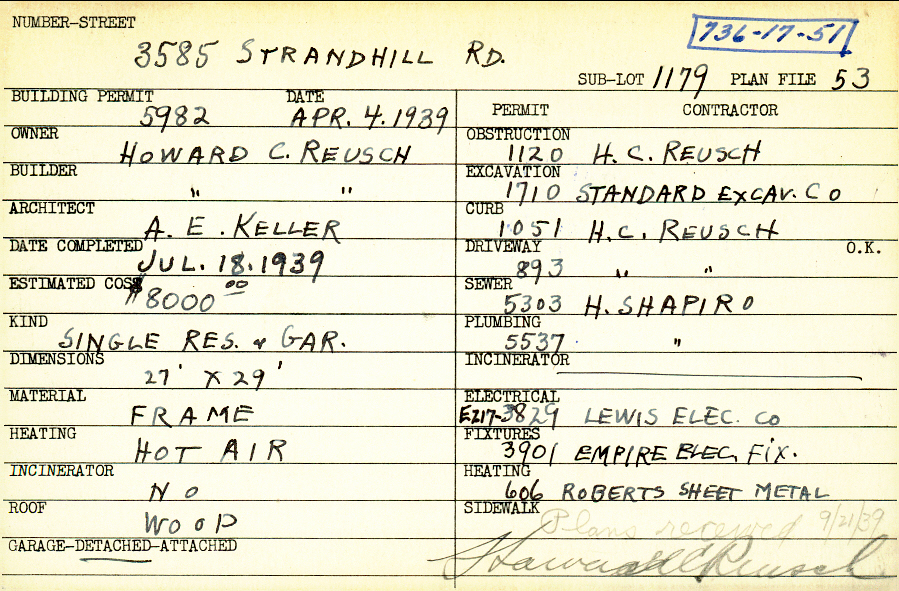 NUMBER-STREET
736-17-51
3585 STRANDHILL RD.
SUB-LOT 1179 PLAN FILE 53
BUILDING PERMIT DATE
5982 APR. 4. 1939
OWNER
HOWARD C. REUSCH
BUILDER
" "
ARCHITECT
A. E. KELLER
DATE COMPLETED
JUL. 18. 1939
ESTIMATED COST
$8000 00
KIND
SINGLE RES. & GAR.
DIMENSIONS
27' X 29'
MATERIAL
FRAME
HEATING
HOT AIR
INCINERATOR
NO
ROOF
WOOD
GARAGE-DETACHED-ATTACHED
PERMIT CONTRACTOR
OBSTRUCTION
1120 H. C. REUSCH
EXCAVATION
1710 STANDARD EXCAV. CO
CURB
1051 H. C. REUSCH
DRIVEWAY O.K.
893 " "
SEWER
5303 H. SHAPIRO
PLUMBING
5537 "
INCINERATOR
ELECTRICAL
E217-3829 LEWIS ELEC. CO
FIXTURES
3901 EMPIRE ELEC. FIX.
HEATING
606 ROBERTS SHEET METAL
SIDEWALK
Plans received 9/21/39
Howard C Reusch